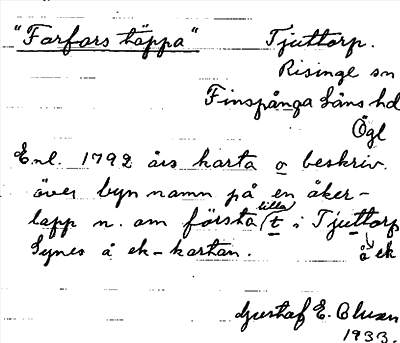 "Farfars täppa" Tjuttorp.
Risinge sn
Finspånga läns hd
Ögl
Enl. 1792 års karta o beskriv.
över byn namn på en åker-
lapp n. om första lilla t i Tjuttorp
Synes å ek-kartan. å ek
Gustaf E. Clusen
1933.